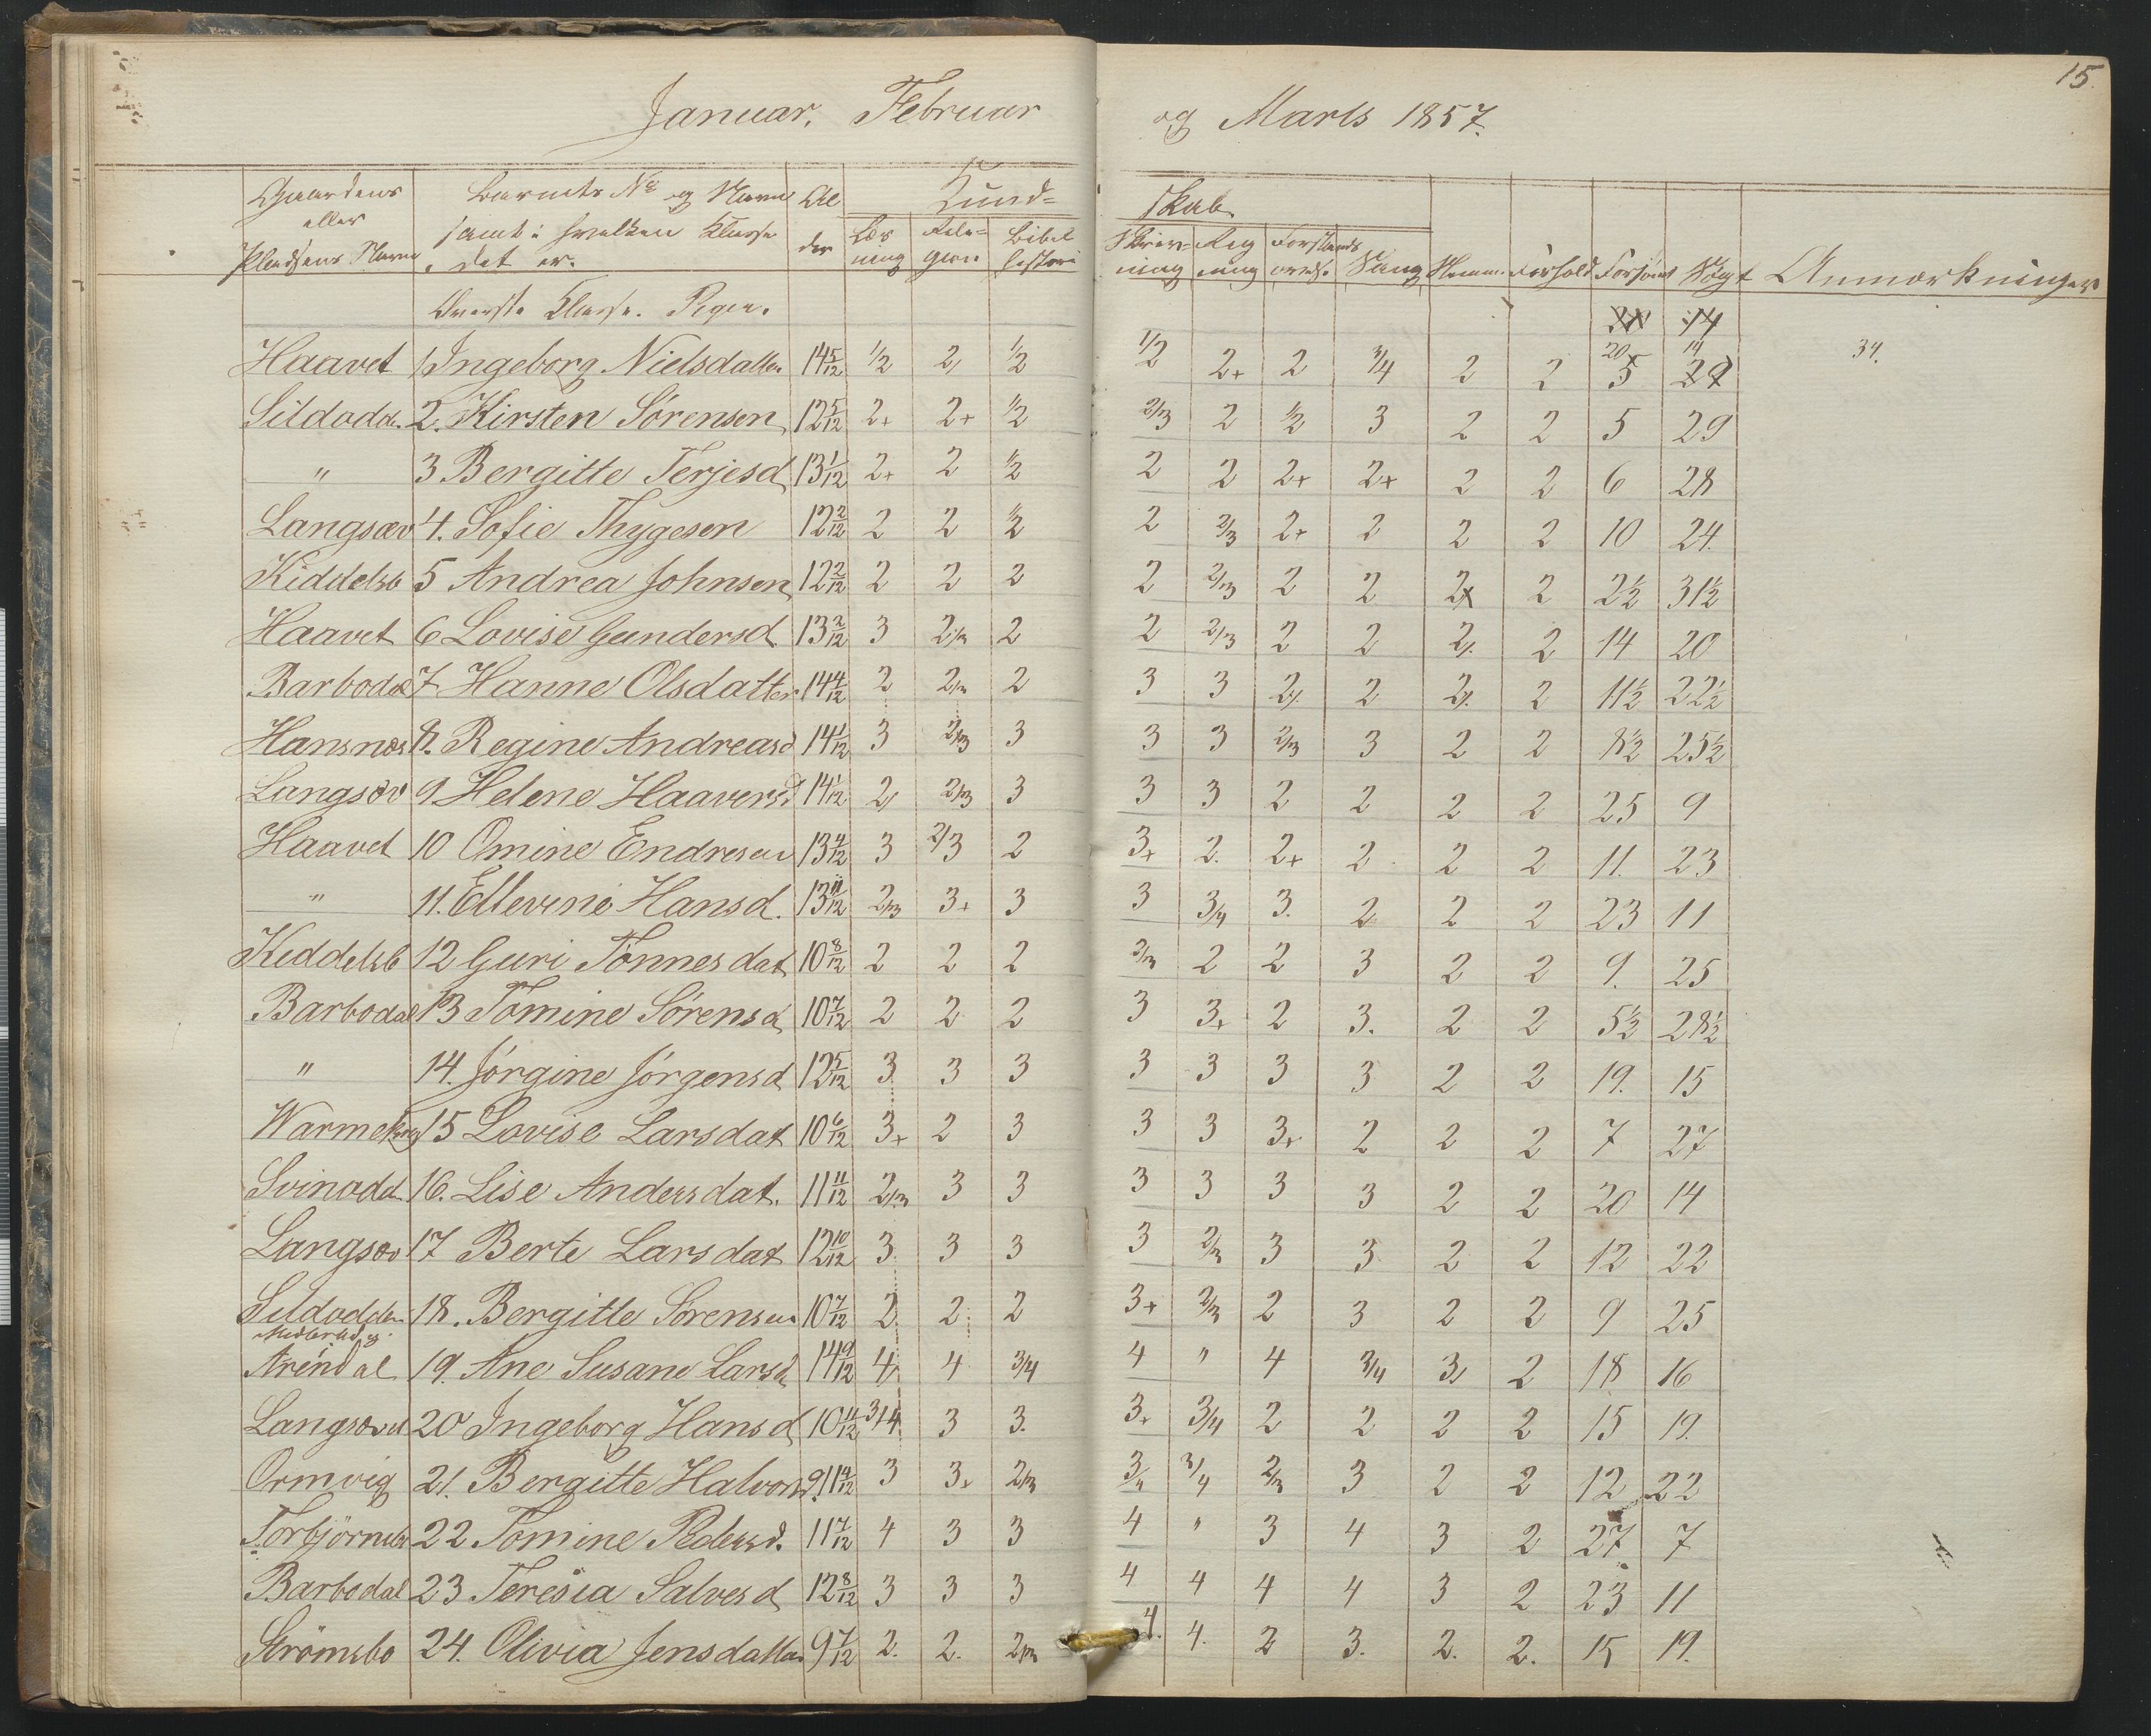 15.
Januar, Februar og Marts 1857.
Gaardens eller Pladsens Navn | Barnets No og Navn samt i hvilken Klasse det er. | Al der | Kund= skab | Anmærkninger
Læs ning | Reli= gion | Bibel historie | Skriv= ning | Reg ning | Forstands øvels. | Sang | Nemme | Forhold | Forsømt | Søgt
Øverste Klasse. Piger.
Haavet 1 Ingeborg Nielsdatter 14 5/12 1/2 2 1/2 1/2 2+ 2 3/4 2 2 20 14 34.
Sildodd. 2. Kirsten Sörensen 12 5/12 2+ 2+ 1/2 2/3 2 1/2 3 2 2 5 29
" 3 Bergitte Terjesd 13 1/12 2+ 2 1/2 2 2 2+ 2+ 2 2 6 28
Langsæv 4. Sofie Thygesen 12 2/12 2 2 1/2 2 2/3 2+ 2 2 2 10 24.
Kiddelsb 5 Andrea Johnsen 12 2/12 2 2 2 2 2/3 2 2 2 2 2½ 31½
Haavet 6 Lovise Gundersd 13 2/12 3 2/3 2 2 2/3 2 2 2 2 14 20
Barbodal 7 Hanne Olsdatter 14 4/12 2 2/3 2 3 3 2 2 2 2 11½ 22½
Hansnæs 8. Regine Andreasd 14 1/12 3 2/3 3 3 3 2/3 3 2 2 8½ 25½
Langsæv 9 Helene Haaversd 14 1/12 2 2/3 3 3 3 2 2 2 2 25 9
Haavet 10 Omine Endresen 13 4/12 3 2/3 2 3+ 2. 2+ 2 2 2 11. 23
" 11. Ellevine Hansd. 13 11/12 2/3 3+ 3 3 3/4 3. 2 2 2 23 11
Kiddelsb 12 Guri Tönnesdat 10 8/12 2 2 2 2/3 2 2 3 2 2 9. 25
Barbodal 13 Tomine Sörensd 10 7/12 2 2 2 3 3+ 2 3. 2 2 5½ 28½
" 14. Jörgine Jörgensd 12 5/12 3 3 3 3 3 3 3 2 2 19. 15
15 Lovise Larsdat 10 6/12 3+ 2 3 3 3 3+ 2 2 2 7 27
Svinodd. 16. Lise Andersdat. 11 11/12 2/3 3 3 3 3 3 3 2 2 20 14
Langsæv 17 Berte Larsdat 12 10/12 3 3 3 3 2/3 3 3 2 2 12 22
Sildodden 18. Bergitte Sörensen 10 7/12 2 2 2 3+ 2/3 2 3 2 2 9 25
Arendal 19. Ane Susane Larsd 14 9/12 4 4 3/4 4 " 4 3/4 3 2 18 16
Langsæv 20 Ingeborg Hansd 10 11/12 3/4 3 3. 3+ 3/4 2 2 2 2 15 19.
Ormvig 21. Bergitte Halvorsd. 11 4/12 3 3+ 2/3 3/4 3/4 2/3 3 2 2 12 22
22 Tomine Pedersd. 11 7/12 4 3 3 4 " 3 4 3 2 27 7
Barbodal 23 Teresia Salvesd 12 8/12 3 3 3 4 4 4 4 3 2 23 11
Strömsbo 24. Olivia Jensdatter 9 7/12 2. 2. 2/3 4. 4. 2 3. 2. 2. 15 19.